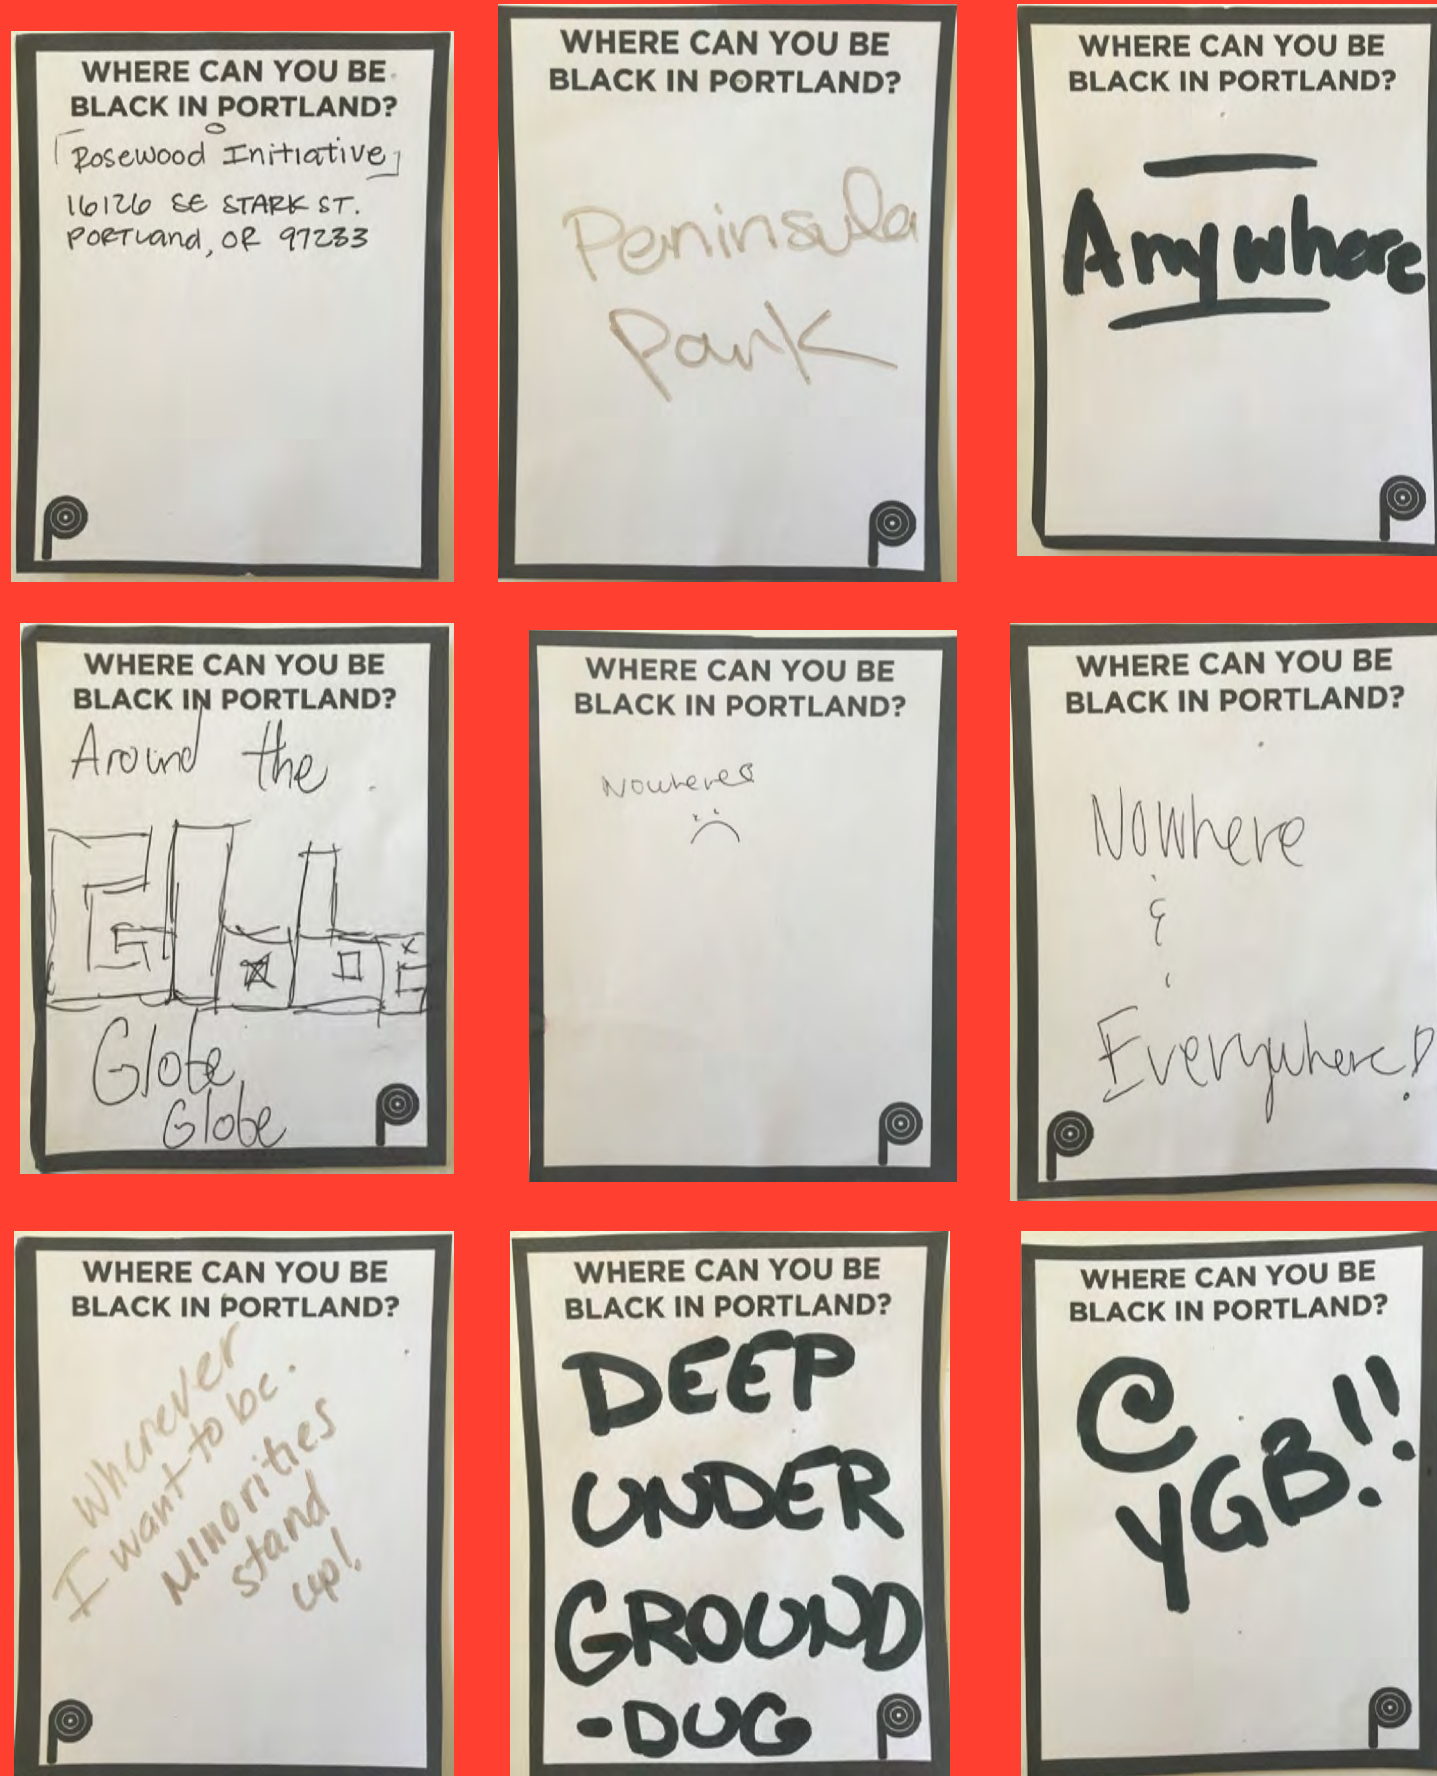 WHERE CAN YOU BE
BLACK IN PORTLAND?
Rosewood Initiative
16126 SE STARK ST.
PORTLand, OR 97233
WHERE CAN YOU BE
BLACK IN PORTLAND?
Peninsula
Park
WHERE CAN YOU BE
BLACK IN PORTLAND?
Anywhere
WHERE CAN YOU BE
BLACK IN PORTLAND?
Around the
Globe
Globe
WHERE CAN YOU BE
BLACK IN PORTLAND?
Nowhere
WHERE CAN YOU BE
BLACK IN PORTLAND?
Nowhere
&
Everywhere!
WHERE CAN YOU BE
BLACK IN PORTLAND?
Wherever
I want to be.
MINorities
stand
up!
WHERE CAN YOU BE
BLACK IN PORTLAND?
DEEP
UNDER
GROUND
-DUG
WHERE CAN YOU BE
BLACK IN PORTLAND?
@
YGB!!